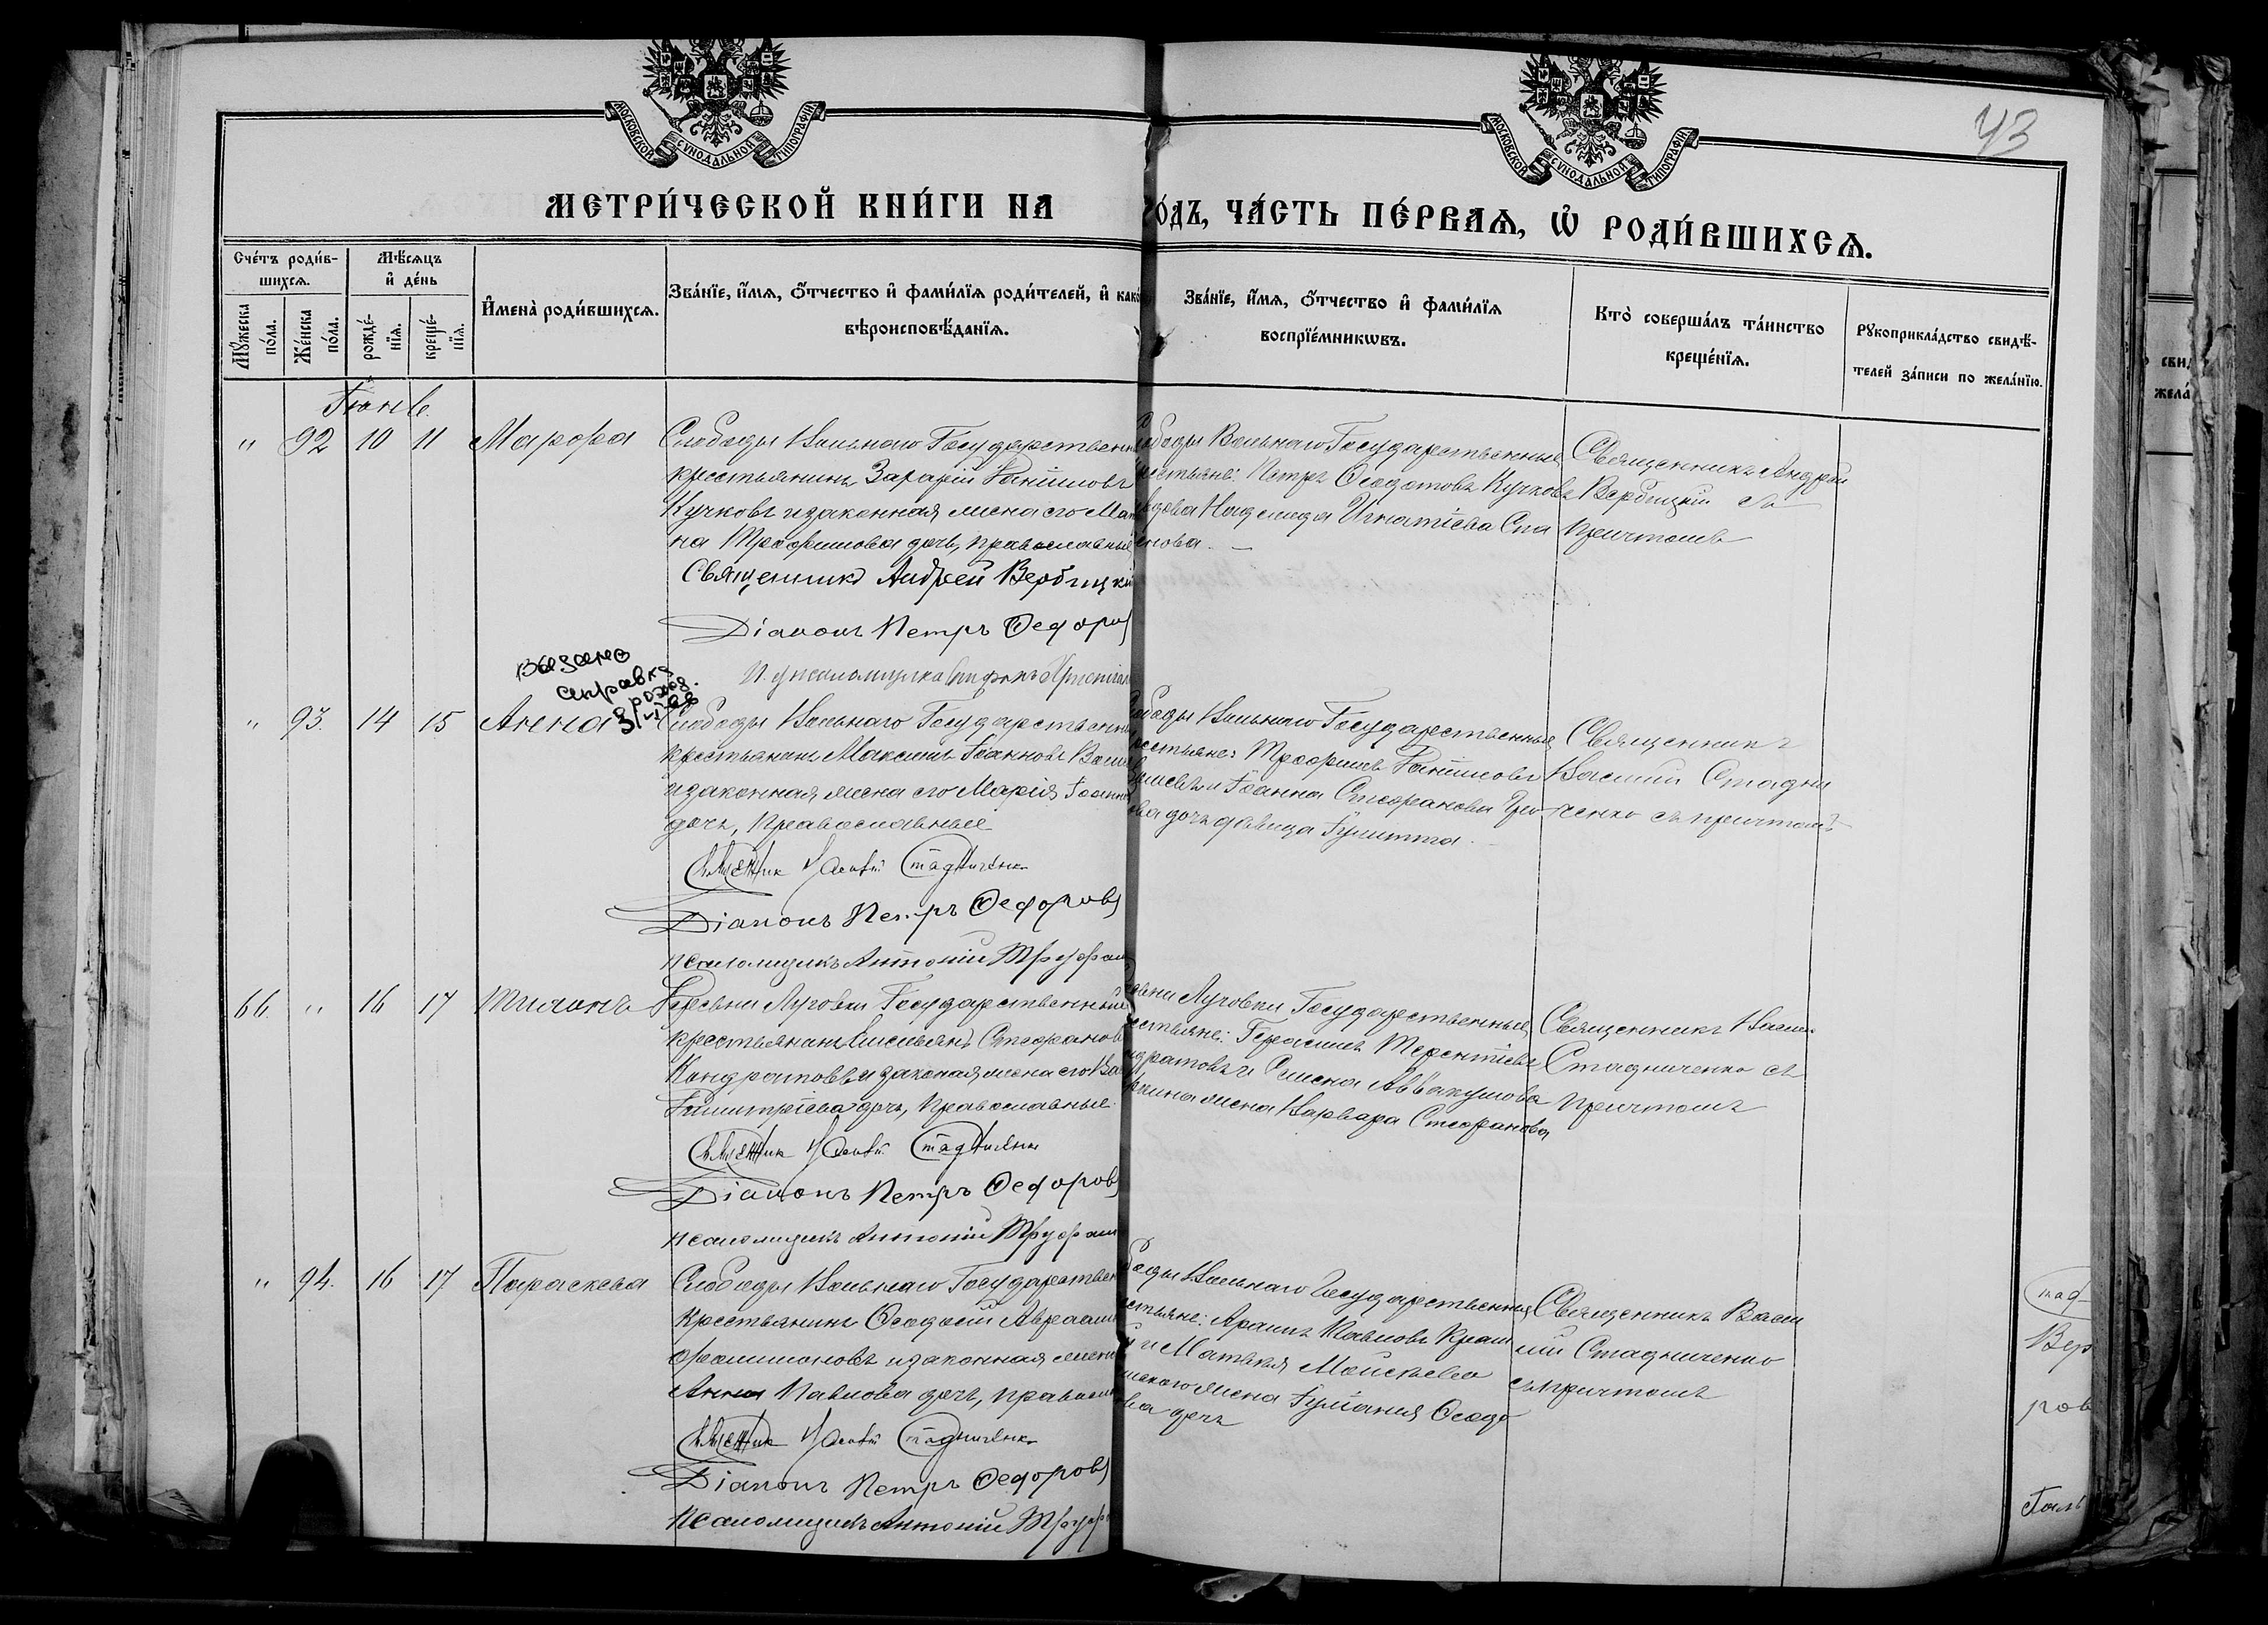 43
МОСКОВСКОЙ СѴНОДАЛЬНОЙ ТИПОГРАФІИ
МОСКОВСКОЙ СѴНОДАЛЬНОЙ ТИПОГРАФІИ
МЕТРИ́ЧЕСКОЙ КНИ́ГИ НА
ГО́ДЪ, ЧА́СТЬ ПЕ́РВАѦ, Ѡ РОДИ́ВШИХСѦ.
Сче́тъ роди́в-
шихсѧ.
Мѣ́сѧцъ
и҆ де́нь
Мꙋ́жеска
по́ла.
Же́нска
по́ла.
рожде́-
нїѧ.
креще́-
нїѧ.
И҆мена̀ роди́вшихсѧ.
Зва́нїе, и҆́мѧ, ѻ҆́тчество и҆ фами́лїѧ роди́телей, и҆ како́
вѣроисповѣ́данїѧ.
Зва́нїе, и҆́мѧ, ѻ҆́тчество и҆ фами́лїѧ
воспрїе́мникѡвъ.
Кто̀ соверша́лъ та́инство
креще́нїѧ.
Рꙋкоприкла́дство свидѣ́-
телей за́писи по жела́нїю.
Іюнь
" 92 10 11 Марфа
Слободы Вольнаго Государственн
крестьянинъ Захарій Даниловъ
Кучковъ и законная жена его Мат
на Трофимова дочь, православные
Священникъ Андрей Вербицкій
Діаконъ Петръ Федоров
слободы Вольнаго Государственные
крестьяне: Петръ Федотовъ Кучковъ
вдова Надежда Игнатіева Спа
нова.
Священникъ Андрей
Вербицкій съ
причтомъ
выдано
справка
рожд.
" 93. 14 15 Анна
Слободы Вольнаго Государственн
крестьянинъ Максимъ Іоанновъ
и законная жена его Марія Іоанно
дочь, Православные
Священник Василій Стадниченко
Діаконъ Петръ Федоровъ
псаломщикъ Антоній
ободы Вольнаго Государственные
крестьяне: Трофимъ Даниловъ
и Іоанна Стефанова
ва дочь девица
Священникъ
Василій Стадни
ченко съ причтомъ
66. " 16 17 Тихонъ
Деревни Луговки Государственный
крестьянинъ Емельянъ Стефановъ
Кондратовъ и законная жена его Ва
Димитріева дочь, Православные.
Священник Василій Стадниченко
Діаконъ Петръ Федоровъ
псаломщикъ Антоній
евни Луговки Государственные
крестьяне: Герасимъ Терентіевъ
ндратовъ и Аввакумова
жена Варвара Стефанова
Священникъ Васи
Стадниченко съ
причтомъ
" 94. 16 17 Параскева
Слободы Вольнаго Государствен
крестьянинъ Феодосій Авраам
и законная жена
Анна Павлова дочь, правосл
Священник Василій Стадниченко
Діаконъ Петръ Федоровъ
Псаломщикъ Антоній
боды Вольнаго Государственные
крестьяне: Павловъ
и Матвея Моисѣева
жена Феодо
ва дочь
Священникъ Васи
лій Стадниченко
съ причтомъ
Вер
ров